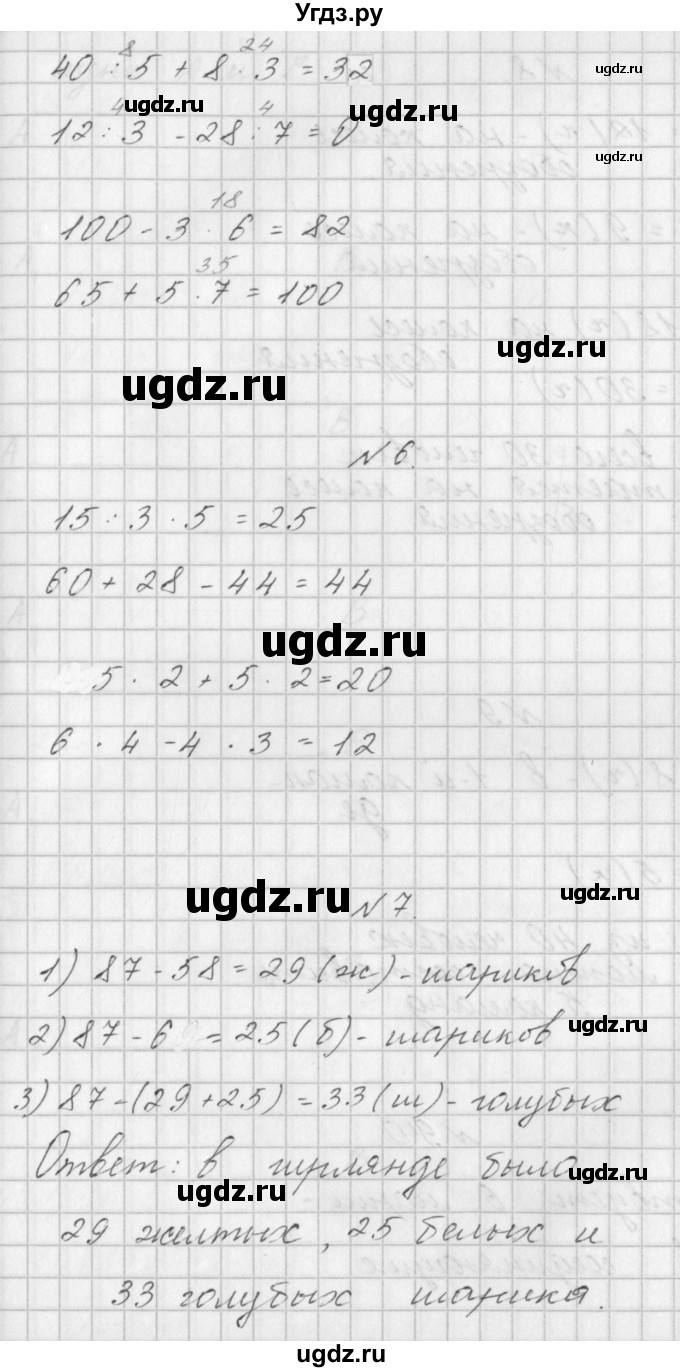 Угдз.ру
8 24
40 : 5 + 8 · 3 = 32
ugdz.ru
ugdz.ru
4 4
12 : 3 - 28 : 7 = 0
ugdz.ru
ugdz.ru
18
100 - 3 · 6 = 82
35
65 + 5 · 7 = 100
ugdz.ru
ugdz.ru
N 6.
15 : 3 · 5 = 25
60 + 28 - 44 = 44
ugdz.ru
5 · 2 + 5 · 2 = 20
6 · 4 - 4 · 3 = 12
ugdz.ru
ugdz.ru
N 7.
1) 87 - 58 = 29 (ж) - шариков
ugdz.ru
2) 87 - 6 = 25 (б) - шариков
3) 87 - (29 + 25) = 33 (ш) - голубых
Ответ: в гирлянде было
ugdz.ru
ugdz.ru
29 желтых, 25 белых и
33 голубых шарика.
ugdz.ru